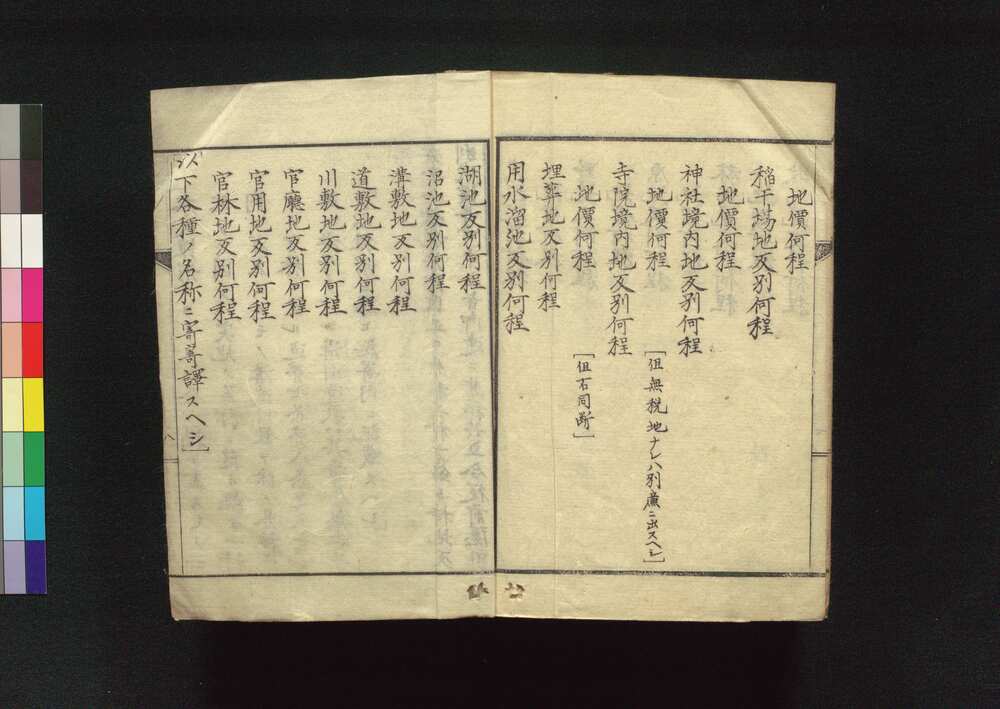 地價何程
稲干場地反別何程
地價何程
神社境内地反別何程
地價何程 [但無税地ナレハ別廉ニ出スヘシ]
寺院境内地反別何程
地價何程 [但右同断]
埋葬地反別何程
用水溜池反別何程
湖池反別何程
沼池反別何程
溝敷地反別何程
道敷地反別何程
川敷地反別何程
官廳地反別何程
官用地反別何程
官林地反別何程
以下各種ノ名称ニ寄譯スヘシ]
八